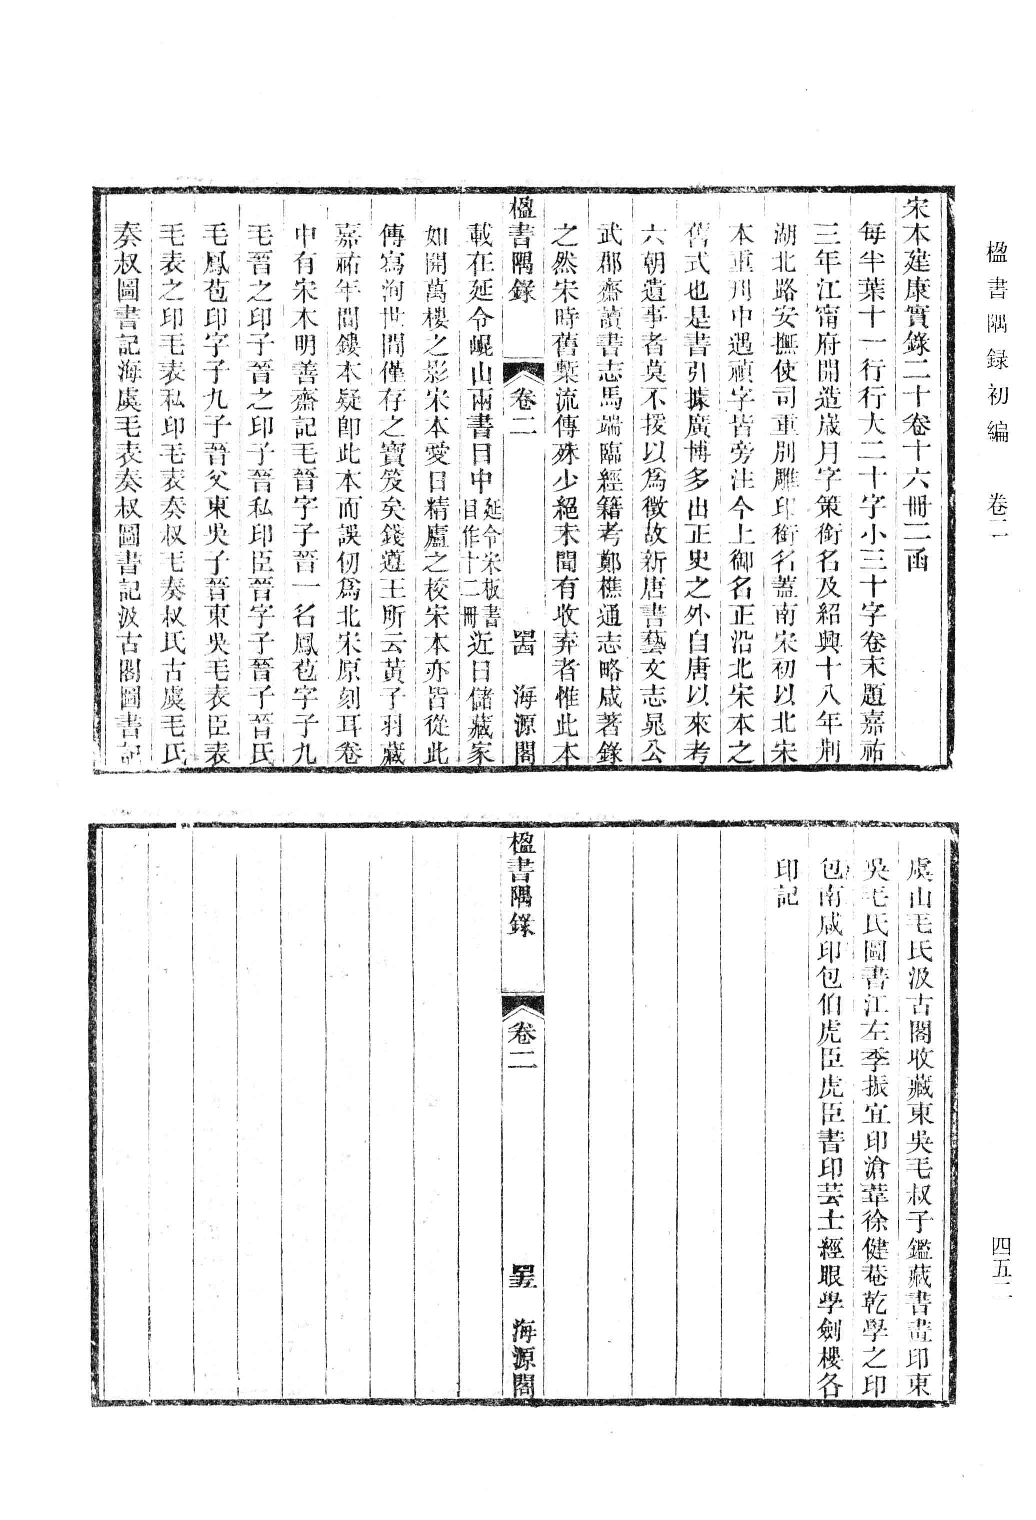 楹書隅録初編　卷二
四五二
宋本建康實錄二十卷十六冊二函
每半葉十一行行大二十字小三十字卷末題嘉祐
三年江甯府開造歲月字策銜名及紹興十八年荆
湖北路安撫使司重別雕印銜名蓋南宋初以北宋
本重刋中遇禎字皆旁注今上御名正沿北宋本之
舊式也是書引據廣博多出正史之外自唐以來考
六朝遺事者莫不援以爲徵故新唐書藝文志晁公
武郡齋讀書志馬端臨經籍考鄭樵通志略咸著錄
之然宋時舊槧流傳殊少絕未聞有收弆者惟此本
楹書隅錄　卷二　罟　海源閣
載在延令崐山兩書目中延令宋板書目作十二冊近日儲藏家
如開萬樓之影宋本愛日精廬之校宋本亦皆從此
傳寫洵世間僅存之寶笈矣錢遵王所云黃子羽藏
嘉祐年間鏤本疑卽此本而誤仞爲北宋原刻耳卷
中有宋本明善齋記毛晉字子晉一名鳳苞字子九
毛晉之印子晉之印子晉私印臣晉字子晉子晉氏
毛鳳苞印字子九子晉父東吳子晉東吳毛表臣表
毛表之印毛表私印毛表奏叔毛奏叔氏古虞毛氏
奏叔圖書記海虞毛表奏叔圖書記汲古閣圖書記
虞山毛氏汲古閣收藏東吳毛叔子鑑藏書畫印東
吳毛氏圖書江左季振宜印滄葦徐健菴乾學之印
包南咸印包伯虎臣虎臣書印芸士經眼學劍樓各
印記
楹書隅錄　卷二　海源閣